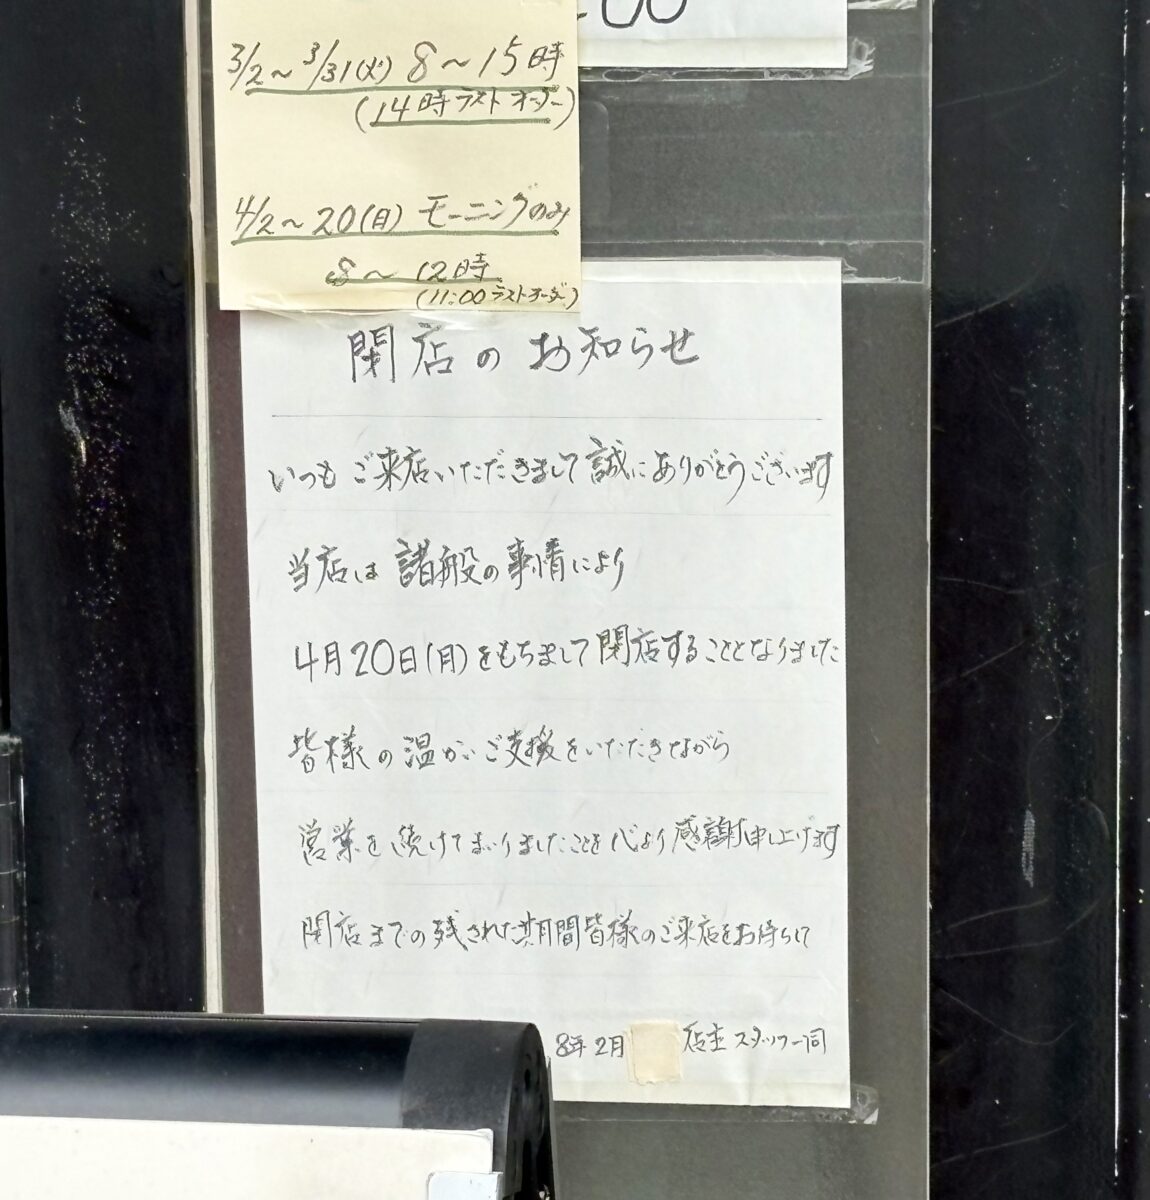 00
3/2～3/31(火) 8～15時
(14時ラストオーダー)
4/2～20(日) モーニングのみ
8～12時
(11:00ラストオーダー)
閉店のお知らせ
いつもご来店いただきまして誠にありがとうございます
当店は諸般の事情により
4月20日(月)をもちまして閉店することとなりました
皆様の温かいご支援をいただきながら
営業を続けてまいりましたことを心より感謝申し上げます
閉店までの残された期間皆様のご来店をお待ちして
8年2月 店主 スタッフ一同